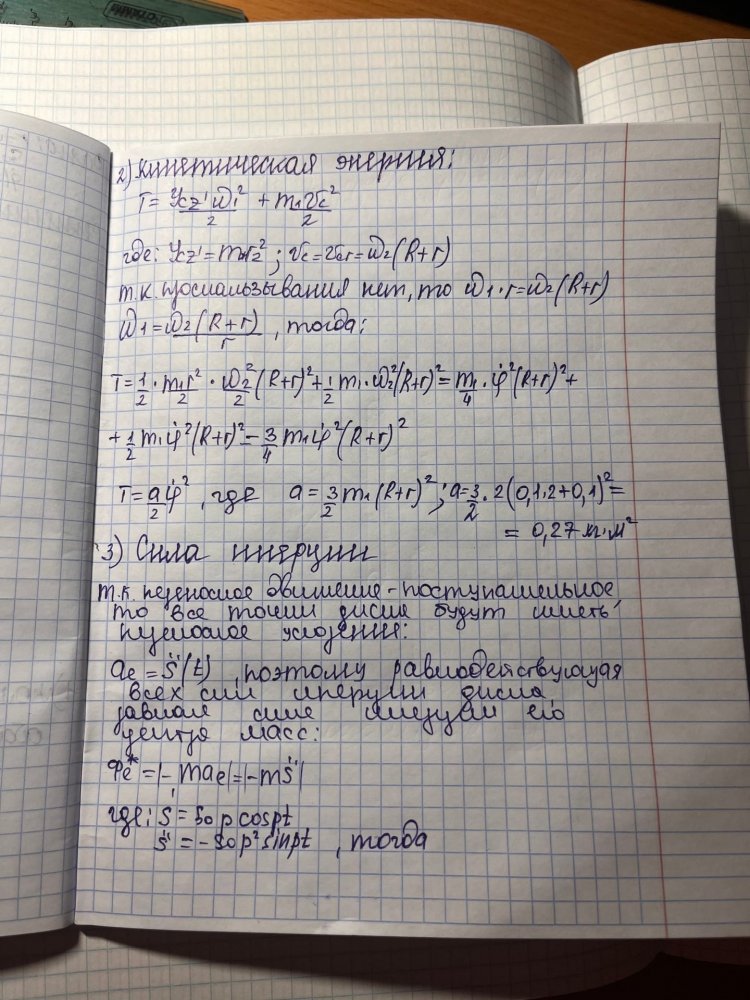 2) Кинетическая энергия:
T = Jcz' ω₁²/2 + m₁Vc²/2
где: Jcz' = m₁r²/2 ; Vc = Vвr = ω₂(R+r)
т.к. проскальзывания нет, то ω₁·r = ω₂(R+r)
ω₁ = ω₂(R+r)/r , тогда:
T = 1/2 · m₁r²/2 · ω₂²/r² (R+r)² + 1/2 m₁·ω₂²(R+r)² = m₁/4 · φ̇²(R+r)² +
+ 1/2 m₁φ̇²(R+r)² = 3/4 m₁φ̇²(R+r)²
T = a/2 φ̇² , где a = 3/2 m₁(R+r)² ; a = 3/2 · 2(0,1·2+0,1)² =
= 0,27 кг·м²
3) Сила инерции
т.к. переносное движение - поступательное
то все точки диска будут иметь
ускорения:
ae = s̈(t) , поэтому равнодействующая
всех сил инерции диска
равная силе инерции его
центра масс:
Φe* = |-mae| = |-ms̈|
где: ṡ = s₀ p cospt
s̈ = -s₀p² sinpt , тогда